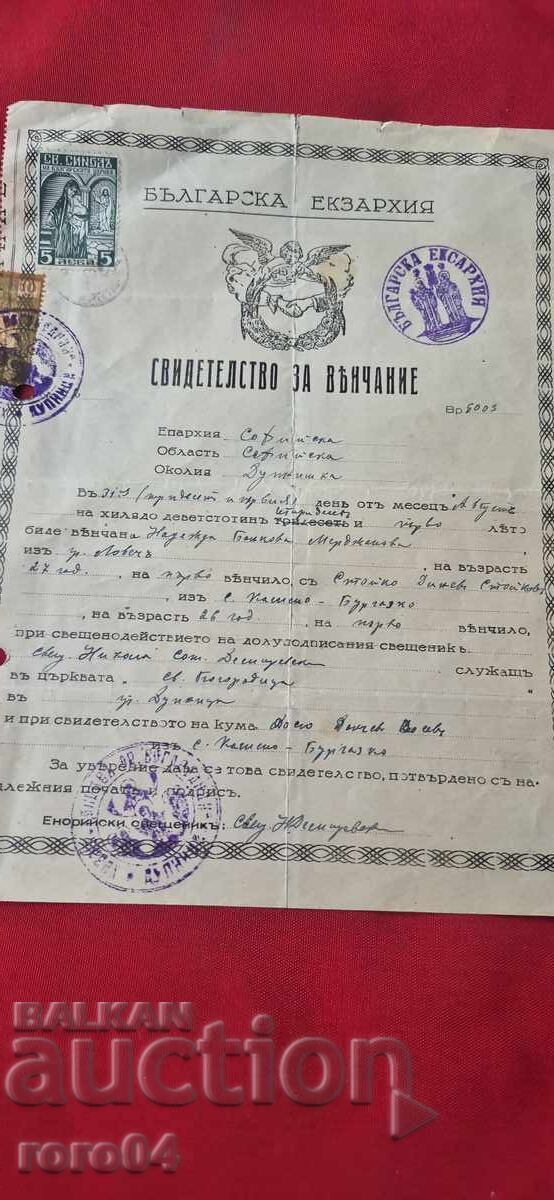 СВ. СИНОДЪ
НА БЪЛГАРСКАТА ЦЪРКВА
5 ЛЕВА 5
БЪЛГАРСКА ЕКЗАРХИЯ
БЪЛГАРСКА ЕКСАРХИЯ
СВИДЕТЕЛСТВО ЗА ВѢНЧАНИЕ
Епархия Софийска
Область Софийска
Околия Дупнишка
Въ 31-й (тридесет и първия) день отъ месецъ Августъ
на хилядо деветстотинъ четиридесеть тридесеть и първо лѣто
биде вѣнчана Надежда
изъ гр. Ловечъ, на възрасть
27 год., на първо вѣнчило, съ Стойко Стойковъ
, изъ с. Камено - Бургазко
, на възрасть 26 год., на първо вѣнчило,
при свещенодействието на долуподписания свещеникъ
Свещ. Никола служащъ
въ църквата Св. Богородица
въ гр. Дупница
и при свидетелството на кума
изъ с. Камено - Бургазко
За уверение дава се това свидетелство, потвърдено съ на-
длежния печатъ и подписъ.
Енорийски свещеникъ: Свещ.
BALKAN
auction
roro04